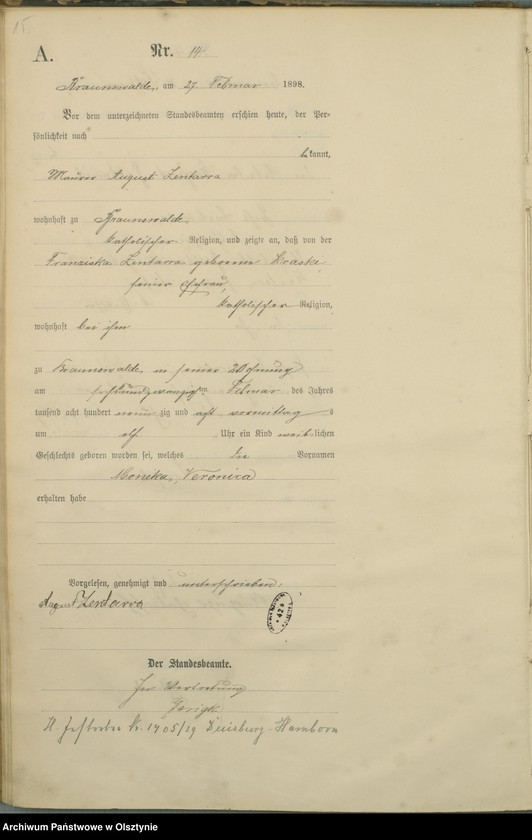 15
A. Nr. 14
Braunswalde, am 27 Februar 1898.
Vor dem unterzeichneten Standesbeamten erschien heute, der Per-
sönlichkeit nach
bekannt,
Maurer August Zentarra
wohnhaft zu Braunswalde
katholischer Religion, und zeigte an, daß von der
Franziska Zentarra geborene
seiner Ehefrau,
katholischer Religion,
wohnhaft bei ihm
zu Braunswalde in seiner Wohnung
am sechsundzwanzigsten Februar des Jahres
tausend acht hundert neunzig und acht vormittags
um elf Uhr ein Kind weiblichen
Geschlechts geboren worden sei, welches die Vornamen
Monika, Veronica
erhalten habe
Vorgelesen, genehmigt und unterschrieben:
August Zentarra
Der Standesbeamte.
In Vertretung
Gerigk
Nr. 1405/19 Duisburg-Hamborn
Archiwum Państwowe w Olsztynie